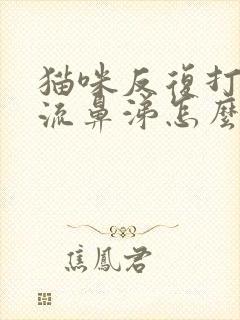 猫咪反復打
流鼻涕怎麼
焦鳳君